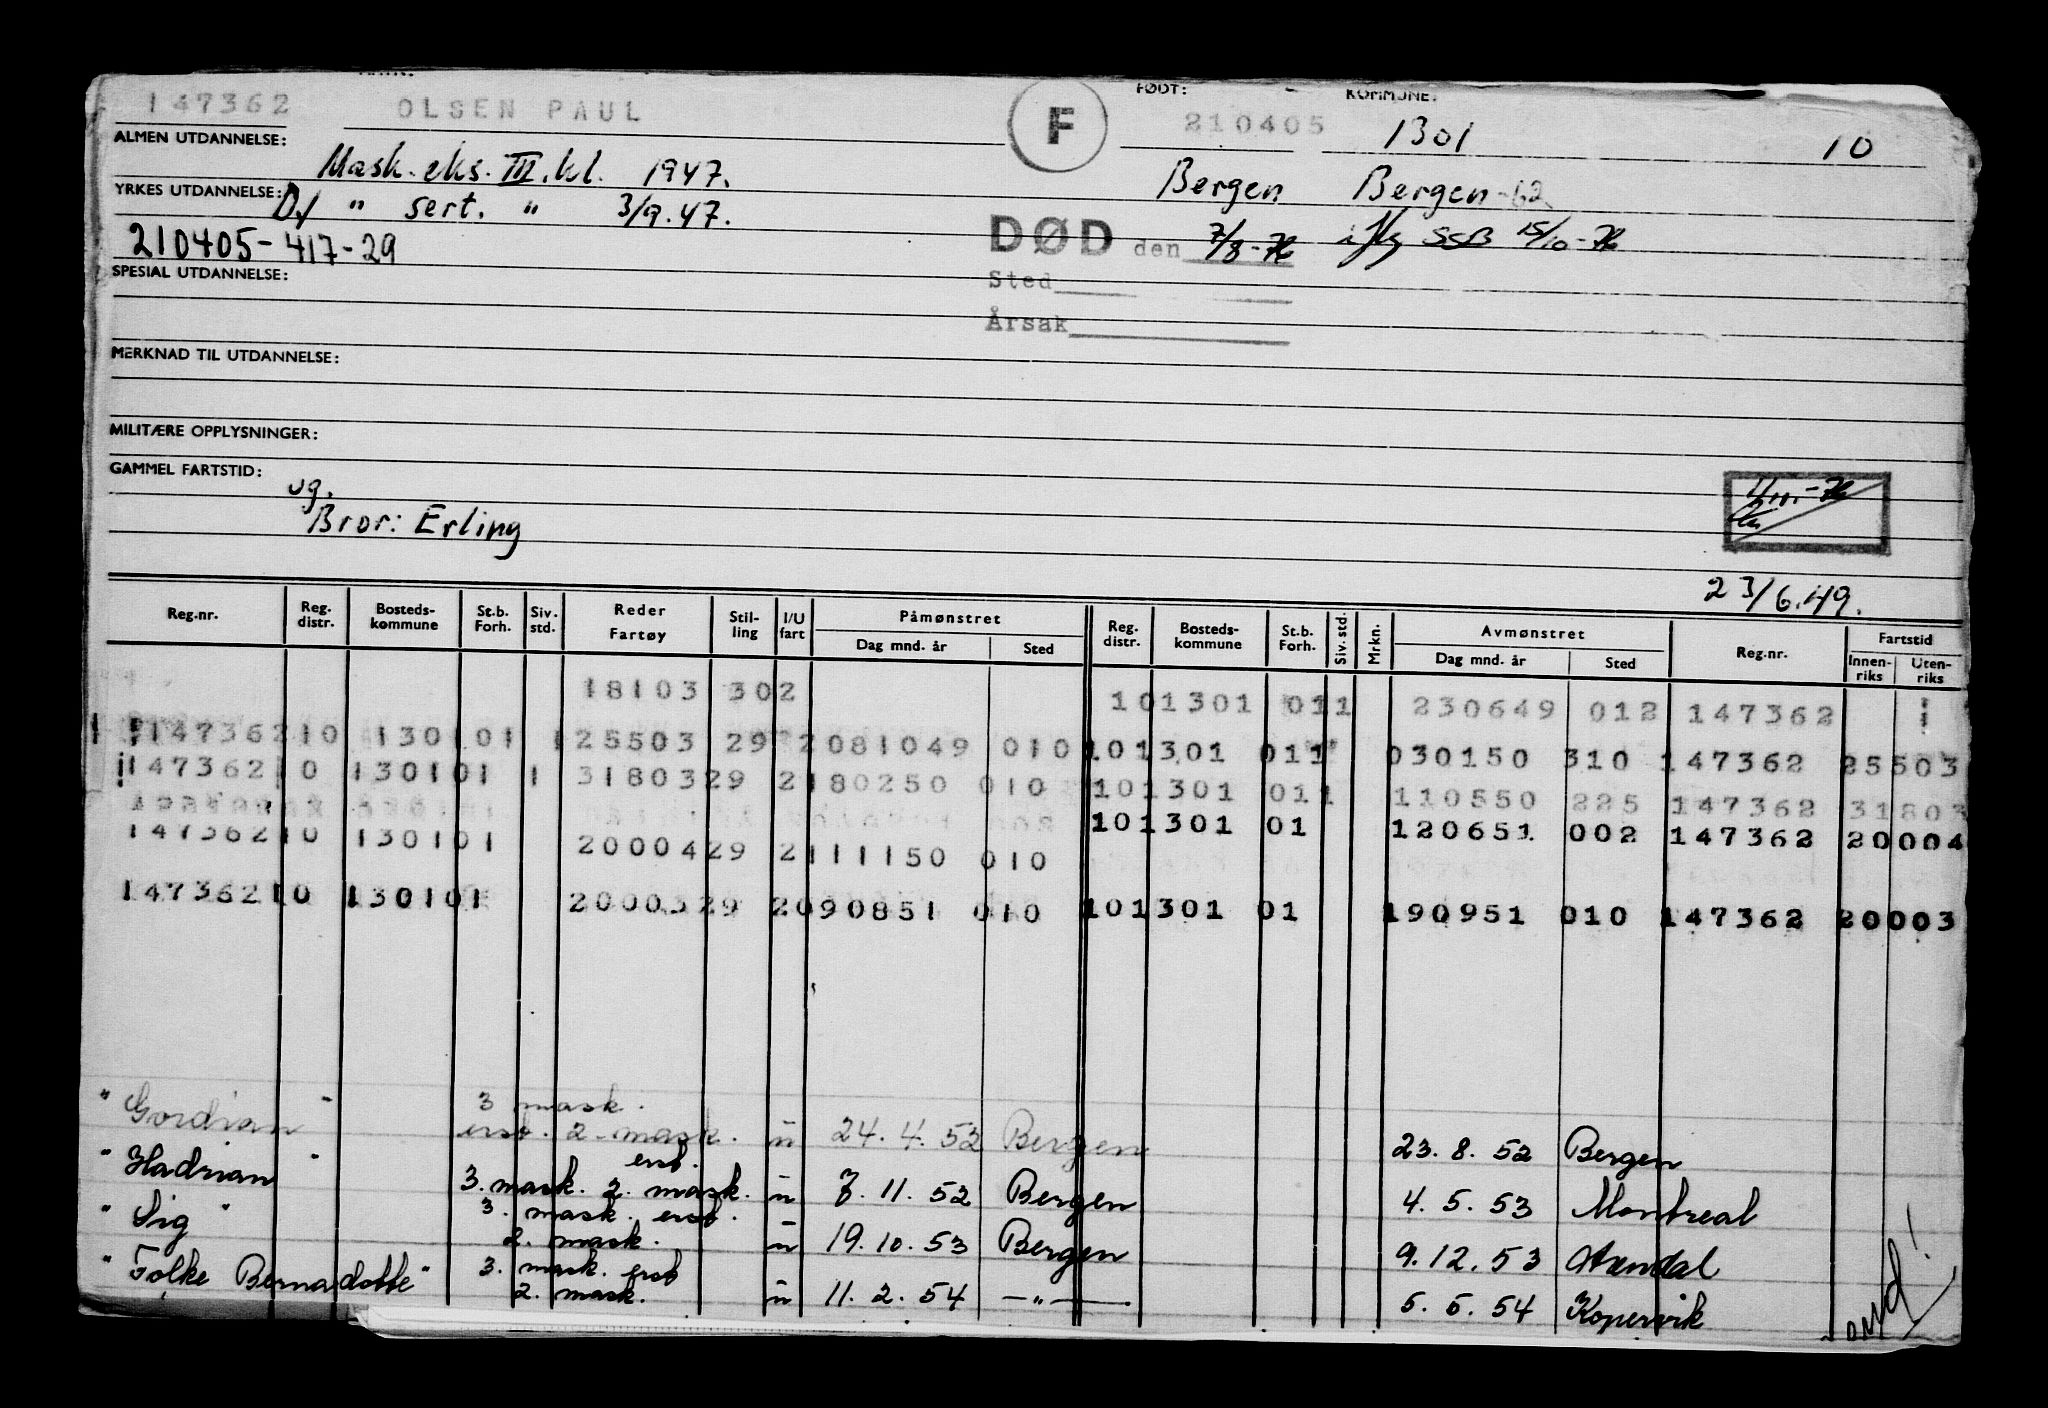 147362 OLSEN PAUL F FØDT: 210405 KOMMUNE: 1301 10
ALMEN UTDANNELSE: Mask. eks. III. kl. 1947. Bergen Bergen-62
YRKES UTDANNELSE: D/ " sert. " 3/9.47.
210405-417-29 DØD den 7/8-76 iflg SSB 15/10-76
SPESIAL UTDANNELSE: Sted
Årsak
MERKNAD TIL UTDANNELSE:
MILITÆRE OPPLYSNINGER:
GAMMEL FARTSTID:
ug.
Bror: Erling
23/6.49.
Reg.nr. Reg. distr. Bosteds-kommune St.b. Forh. Siv. std. Reder Fartøy Stil-ling I/U fart Påmønstret Dag mnd. år Sted Reg. distr. Bosteds-kommune St.b. Forh. Siv. std. Mrkn. Avmønstret Dag mnd. år Sted Reg.nr. Fartstid Innen-riks Uten-riks
18103 302 101301 011 230649 012 147362
147362 10 130101 1 25503 29 2 081049 010 101301 011 030150 310 147362 25503
147362 10 130101 1 31803 29 2 180250 010 101301 011 110550 225 147362 31803
147362 10 130101 20004 29 2 111150 010 101301 01 120651 002 147362 20004
147362 10 130101 20003 29 2 090851 010 101301 01 190951 010 147362 20003
" Gordian " 3 mask. erst. 2. mask. u 24. 4. 52 Bergen 23. 8. 52 Bergen
" Hadrian " 3. mask. erst. 2. mask. u 7. 11. 52 Bergen 4. 5. 53 Montreal
" Sig " 3. mask. erst. 2. mask. u 19. 10. 53 Bergen 9. 12. 53
" Folke Bernadotte " 3. mask. erst 2. mask. u 11. 2. 54 — " — 5. 5. 54 Kopervik